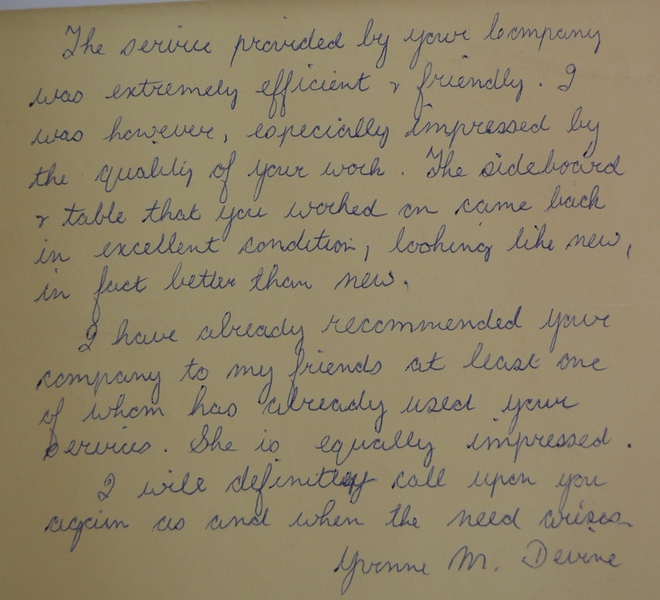 The service provided by your Company
was extremely efficient & friendly. I
was however, especially impressed by
the quality of your work. The sideboard
& table that you worked on came back
in excellent condition, looking like new,
in fact better than new.
I have already recommended your
company to my friends at least one
of whom has already used your
services. She is equally impressed.
I will definitely call upon you
again as and when the need arises
Yvonne M. Devine